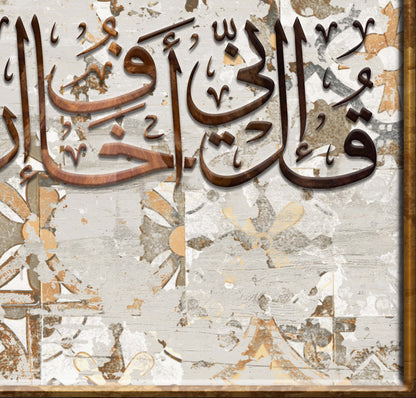 قُلْ إِنِّي أَخَافُ إِ